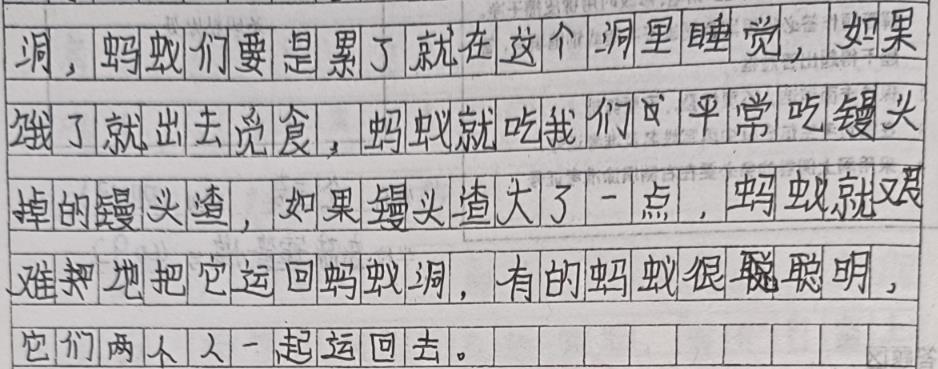 洞，蚂蚁们要是累了就在这个洞里睡觉，如果
饿了就出去觅食，蚂蚁就吃我们平常吃馒头
掉的馒头渣，如果馒头渣大了一点，蚂蚁就艰
难地把它运回蚂蚁洞，有的蚂蚁很聪明，
它们两个人一起运回去。